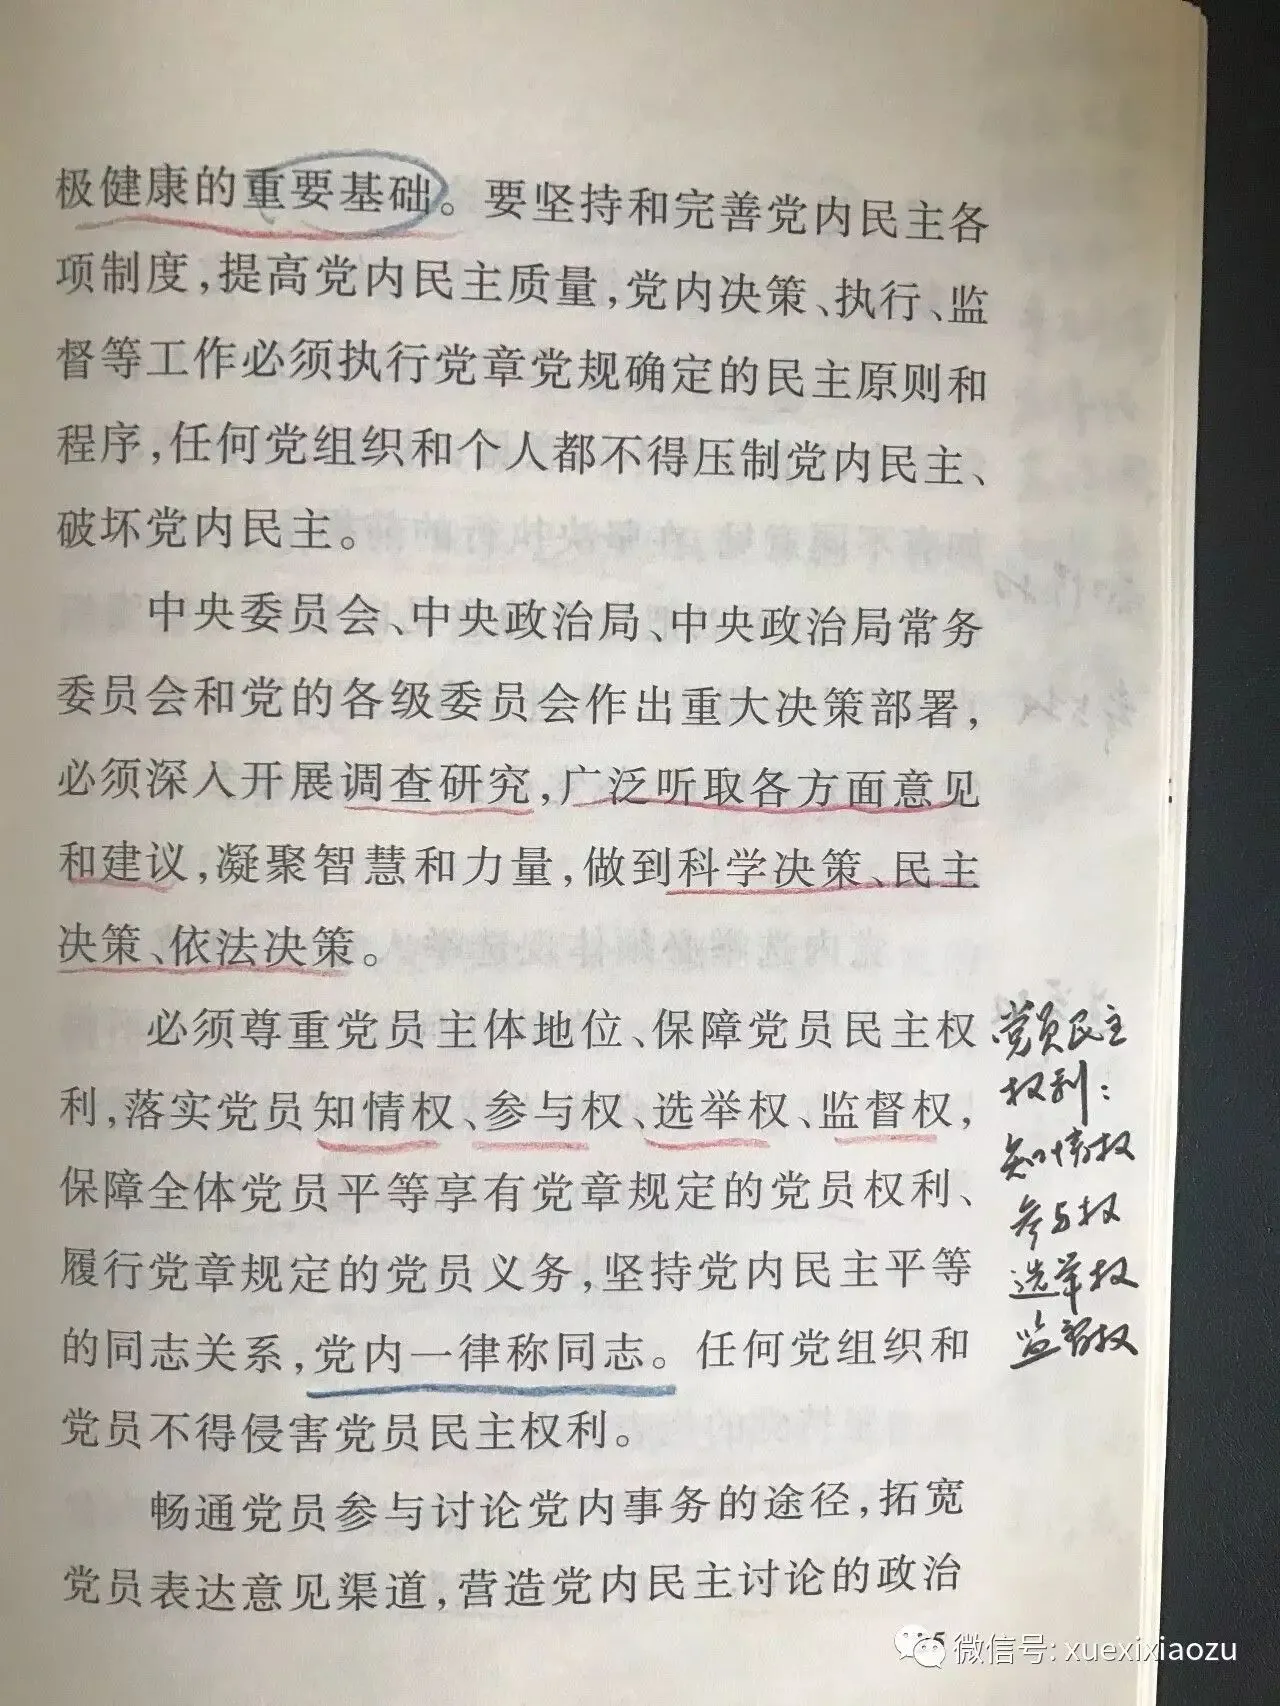 极健康的重要基础。要坚持和完善党内民主各
项制度,提高党内民主质量,党内决策、执行、监
督等工作必须执行党章党规确定的民主原则和
程序,任何党组织和个人都不得压制党内民主、
破坏党内民主。
中央委员会、中央政治局、中央政治局常务
委员会和党的各级委员会作出重大决策部署,
必须深入开展调查研究,广泛听取各方面意见
和建议,凝聚智慧和力量,做到科学决策、民主
决策、依法决策。
必须尊重党员主体地位、保障党员民主权
利,落实党员知情权、参与权、选举权、监督权,
保障全体党员平等享有党章规定的党员权利、
履行党章规定的党员义务,坚持党内民主平等
的同志关系,党内一律称同志。任何党组织和
党员不得侵害党员民主权利。
畅通党员参与讨论党内事务的途径,拓宽
党员表达意见渠道,营造党内民主讨论的政治
党员民主
权利:
知情权
参与权
选举权
监督权
微信号: xuexixiaozu